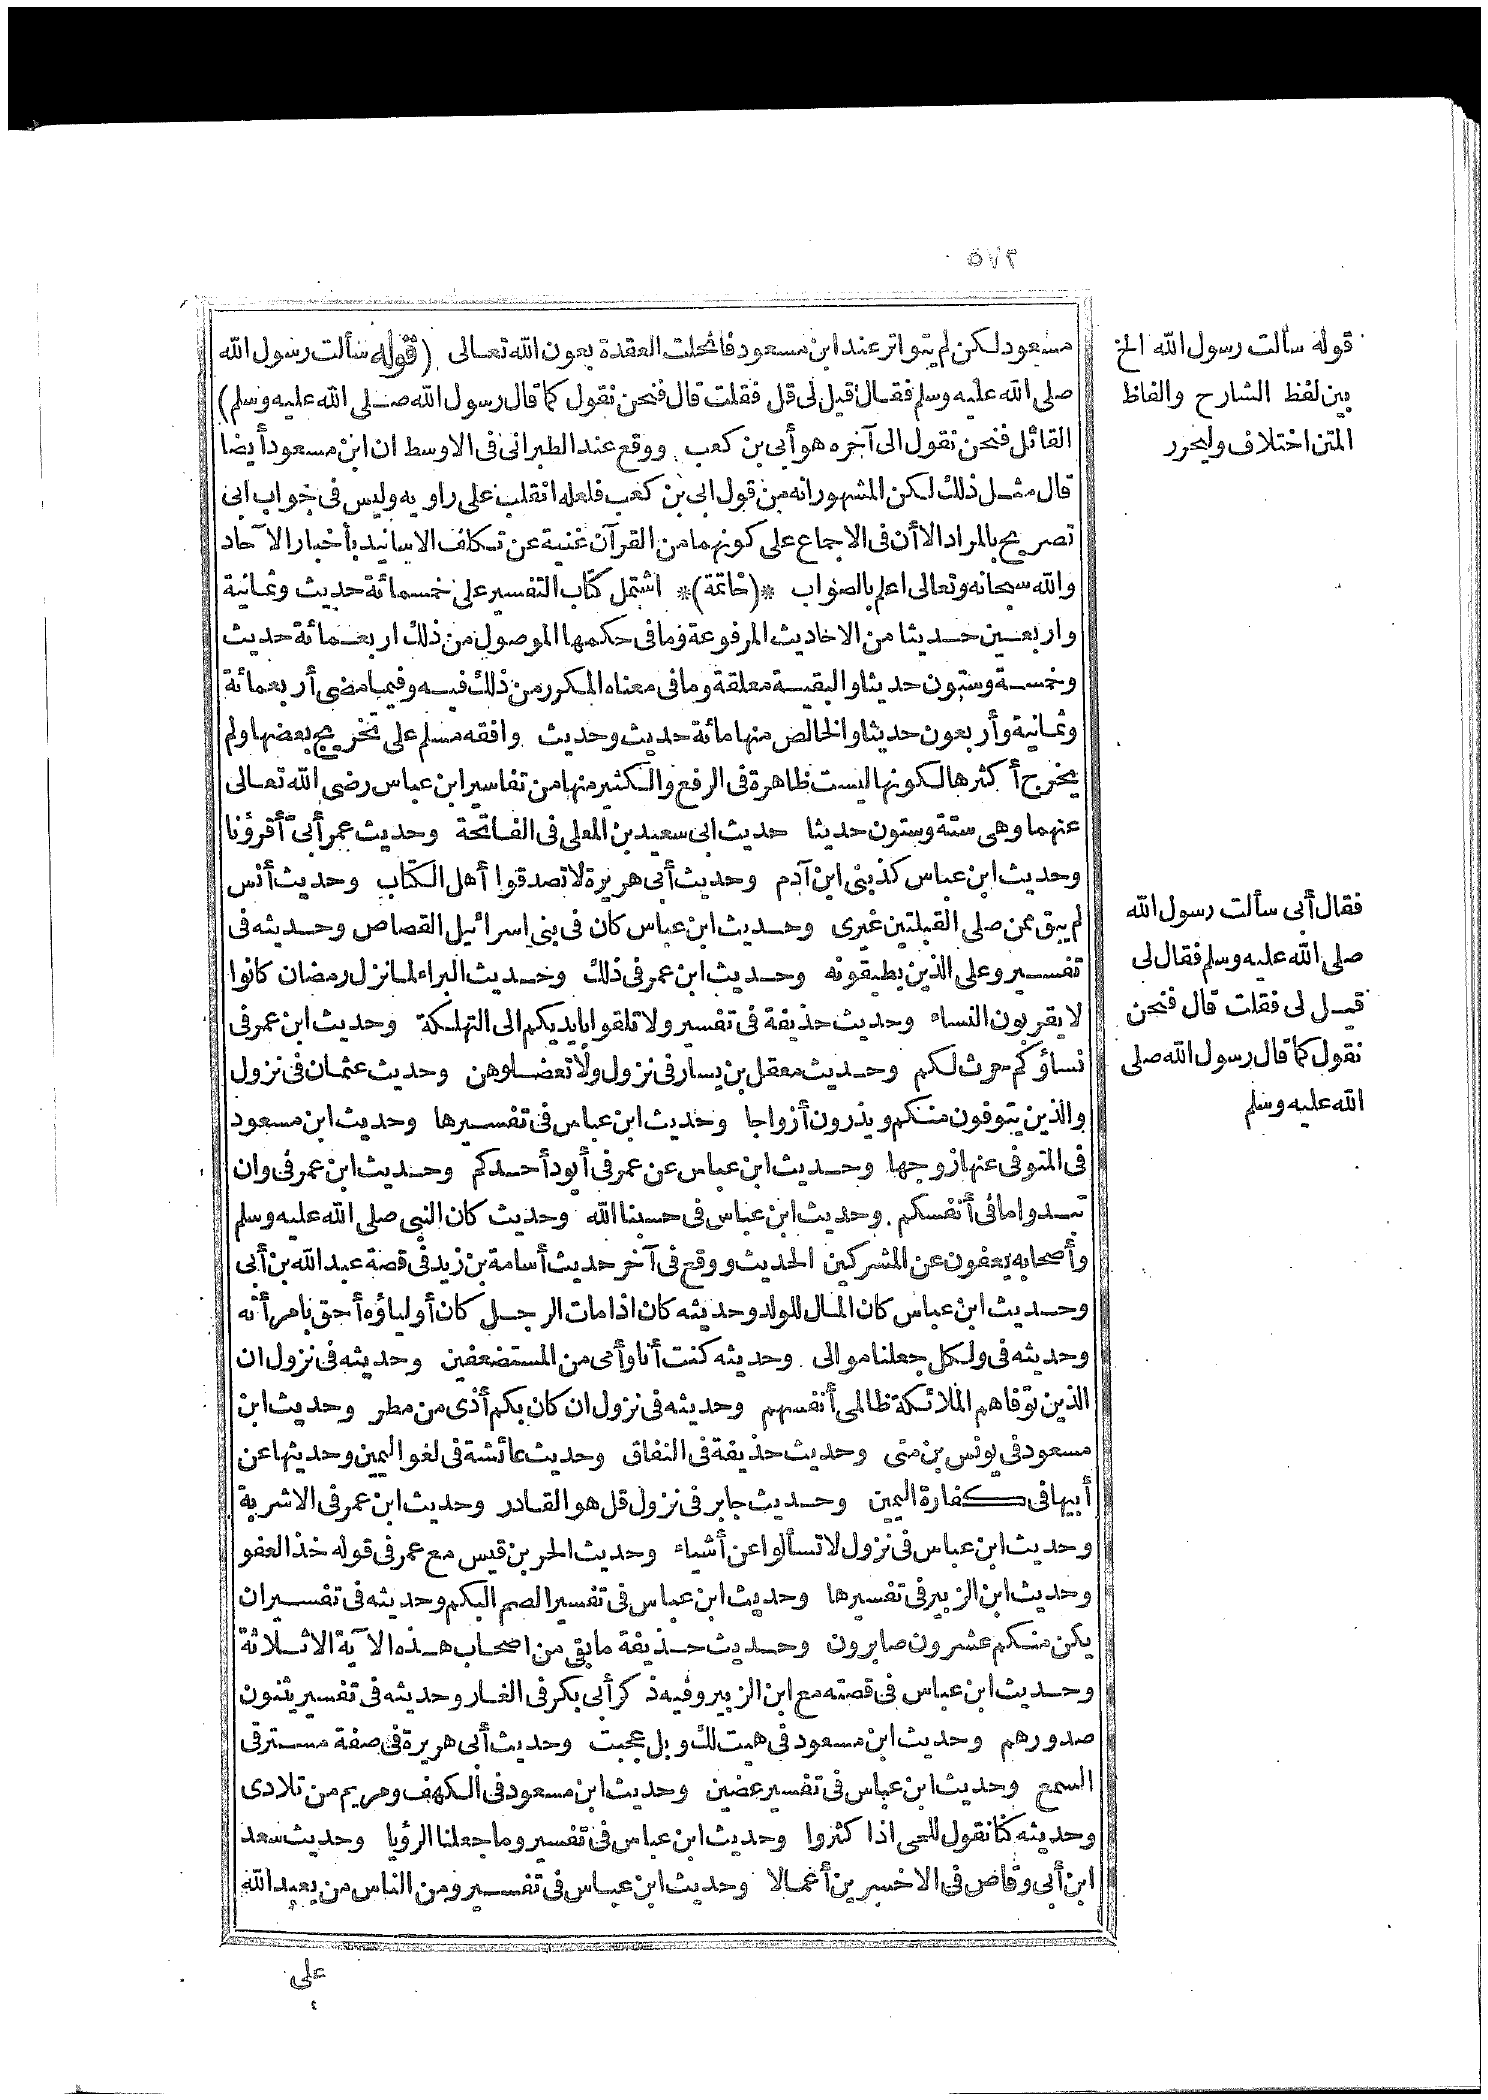 ٥٧٢
مسعود لكن لم يتواتر عند ابن مسعود فانحلت العقدة بعون الله تعالى (قوله سألت رسول الله
صلى الله عليه وسلم فقال قيل لى قل فقلت قال فنحن نقول كما قال رسول الله صلى الله عليه وسلم)
القائل فنحن نقول الى آخره هو أبى بن كعب ووقع عند الطبرانى فى الاوسط ان ابن مسعود أيضا
قال مثل ذلك لكن المشهور انه من قول ابى بن كعب فلعله انقلب على راويه وليس فى جواب ابى
تصريح بالمراد الا أن فى الاجماع على كونهما من القرآن غنية عن تكلف الاسانيد بأخبار الآحاد
والله سبحانه وتعالى اعلم بالصواب *(خاتمة)* اشتمل كتاب التفسير على خمسمائة حديث وثمانية
واربعين حديثا من الاحاديث المرفوعة وما فى حكمها الموصول من ذلك اربعمائة حديث
وخمسة وستون حديثا والبقية معلقة وما فى معناه المكرر من ذلك فيه وفيما مضى أربعمائة
وثمانية وأربعون حديثا والخالص منها مائة حديث وحديث وافقه مسلم على تخريج بعضها ولم
يخرج أكثرها لكونها ليست ظاهرة فى الرفع والكثير منها من تفاسير ابن عباس رضى الله تعالى
عنهما وهى ستة وستون حديثا حديث ابى سعيد بن المعلى فى الفاتحة وحديث عمر أبىّ أقرؤنا
وحديث ابن عباس كذبنى ابن آدم وحديث أبى هريرة لا تصدقوا أهل الكتاب وحديث أنس
لم يبق ممن صلى القبلتين غيرى وحديث ابن عباس كان فى بنى اسرائيل القصاص وحديثه فى
تفسير وعلى الذين يطيقونه وحديث ابن عمر فى ذلك وحديث البراء لما نزل رمضان كانوا
لا يقربون النساء وحديث حذيفة فى تفسير ولا تلقوا بايديكم الى التهلكة وحديث ابن عمر فى
نساؤكم حرث لكم وحديث معقل بن يسار فى نزول ولا تعضلوهن وحديث عثمان فى نزول
والذين يتوفون منكم ويذرون أزواجا وحديث ابن عباس فى تفسيرها وحديث ابن مسعود
فى المتوفى عنها زوجها وحديث ابن عباس عن عمر فى أيود أحدكم وحديث ابن عمر فى وان
تبدوا ما فى أنفسكم وحديث ابن عباس فى حسبنا الله وحديث كان النبى صلى الله عليه وسلم
وأصحابه يعفون عن المشركين الحديث ووقع فى آخر حديث أسامة بن زيد فى قصة عبد الله بن أبى
وحديث ابن عباس كان المال للولد وحديثه كان اذا مات الرجل كان أولياؤه أحق بامرأته
وحديثه فى ولكل جعلنا موالى وحديثه كنت أنا وأمى من المستضعفين وحديثه فى نزول ان
الذين توفاهم الملائكة ظالمى أنفسهم وحديثه فى نزول ان كان بكم أذى من مطر وحديث ابن
مسعود فى يونس بن متى وحديث حذيفة فى النفاق وحديث عائشة فى لغو اليمين وحديثها عن
أبيها فى كفارة اليمين وحديث جابر فى نزول قل هو القادر وحديث ابن عمر فى الاشربة
وحديث ابن عباس فى نزول لا تسألوا عن أشياء وحديث الحر بن قيس مع عمر فى قوله خذ العفو
وحديث ابن الزبير فى تفسيرها وحديث ابن عباس فى تفسير الصم البكم وحديثه فى تفسير ان
يكن منكم عشرون صابرون وحديث حذيفة ما بقى من اصحاب هذه الآية الا ثلاثة
وحديث ابن عباس فى قصته مع ابن الزبير وفيه ذكر أبى بكر فى الغار وحديثه فى تفسير يثنون
صدورهم وحديث ابن مسعود فى هيت لك وبل عجبت وحديث أبى هريرة فى صفة مسترقى
السمع وحديث ابن عباس فى تفسير عضين وحديث ابن مسعود فى الكهف ومريم من تلادى
وحديثه كنا نقول للحى اذا كثروا وحديث ابن عباس فى تفسير وما جعلنا الرؤيا وحديث سعد
ابن أبى وقاص فى الاخسرين أعمالا وحديث ابن عباس فى تفسير ومن الناس من يعبد الله
على
قوله سألت رسول الله الخ
بين لفظ الشارح والفاظ
المتن اختلاف وليحرر
فقال أبى سألت رسول الله
صلى الله عليه وسلم فقال لى
قيل لى فقلت قال فنحن
نقول كما قال رسول الله صلى
الله عليه وسلم